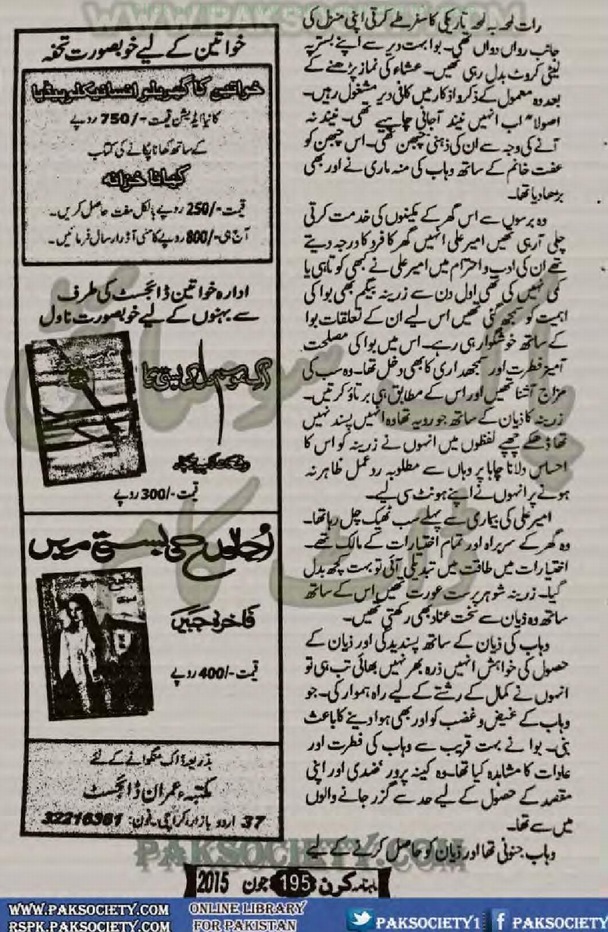 WWW.PAKSOCIETY.COM
رات لمحہ بہ لمحہ تاریکی کا سفر طے کرتی اپنی منزل کی
جانب رواں دواں تھی۔ بوا بہت دیر سے اپنے بستر پہ
لیٹی کروٹ بدل رہی تھیں۔ عشاء کی نماز پڑھنے کے
بعد وہ معمول کے ذکر و اذکار میں کافی دیر مشغول رہیں۔
اصولا" اب انہیں نیند آجانی چاہیے تھی۔ نیند نہ
آنے کی وجہ سے ان کی ذہنی چبھن تھی۔ اس چبھن کو
عفت خانم کے ساتھ وہاب کی منہ ماری نے اور بھی
بڑھا دیا تھا۔
وہ برسوں سے اس گھر کے مکینوں کی خدمت کرتی
چلی آرہی تھیں امیر علی انہیں گھر کا فرد کا درجہ دیتے
تھے ان کی ادب و احترام میں امیر علی نے بھی کوتاہی یا
کمی نہیں کی تھی اول دن سے زرینہ بیگم بھی بوا کی
اہمیت کو سمجھ گئی تھیں اس لیے ان کے تعلقات بوا
کے ساتھ خوشگوار ہی رہے۔ اس میں بوا کی مصلحت
آمیز فطرت اور سمجھداری کا بھی دخل تھا۔ وہ سب کی
مزاج آشنا تھیں اور اس کے مطابق ہی برتاؤ کرتیں۔
زرینہ کا ذیان کے ساتھ جو رویہ تھا وہ انہیں پسند نہیں
تھا ڈھکے چھپے لفظوں میں انہوں نے زرینہ کو اس کا
احساس دلانا چاہا پر وہاں سے مطلوبہ رد عمل ظاہر نہ
ہونے پر انہوں نے اپنے ہونٹ سی لیے۔
امیر علی کی بیماری سے پہلے سب ٹھیک چل رہا تھا۔
وہ گھر کے سربراہ اور تمام اختیارات کے مالک تھے۔
اختیارات میں طاقت میں تبدیلی آئی تو بہت کچھ بدل
گیا۔ زرینہ شوہر پرست عورت تھیں اس کے ساتھ
ساتھ وہ ذیان سے سخت عناد بھی رکھتی تھیں۔
وہاب کی ذیان کے ساتھ پسندیدگی اور ذیان کے
حصول کی خواہش انہیں ذرہ بھر نہیں بھائی تب ہی تو
انہوں نے کمال کے رشتے کے لیے راہ ہموار کی۔ جو
وہاب کے غیض و غضب کو اور بھی ہوا دینے کا باعث
بنی۔ بوا نے بہت قریب سے وہاب کی فطرت اور
عادات کا مشاہدہ کیا تھا۔ وہ کینہ پرور ضدی اور اپنی
مقصد کے حصول کے لیے حد سے گزر جانے والوں
میں سے تھا۔
وہاب جنونی تھا اور ذیان کو حاصل کرنے کے لیے
خواتین کے لیے خوبصورت تحفہ
خواتین کا گھریلو انسائیکلوپیڈیا
کا نیا ایڈیشن قیمت -/750 روپے
کے ساتھ کھانا پکانے کی کتاب
کھانا خزانہ
قیمت -/250 روپے بالکل مفت حاصل کریں۔
آج ہی -/800 روپے کا منی آڈر ارسال فرمائیں۔
ادارہ خواتین ڈائجسٹ کی طرف
سے بہنوں کے لیے خوبصورت ناول
قیمت -/300 روپے
اُجالوں کی بستی میں
فاخرہ جبیں
قیمت -/400 روپے
بذریعہ ڈاک منگوانے کے لئے
مکتبہ عمران ڈائجسٹ
37 اردو بازار، کراچی۔ فون: 32216361
پاک سوسائٹی
ڈاٹ کام
PAKSOCIETY.COM
ماہنامہ کرن 195 جون 2015
WWW.PAKSOCIETY.COM
RSPK.PAKSOCIETY.COM
ONLINE LIBRARY
FOR PAKISTAN
PAKSOCIETY1
PAKSOCIETY